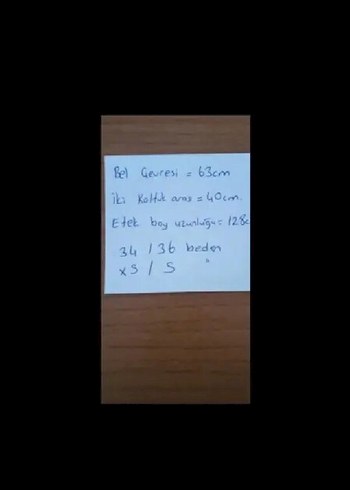 Bel Çevresi = 63cm
İki Koltuk arası = 40cm.
Etek boy uzunluğu = 128c
34 / 36 beden
xS / S